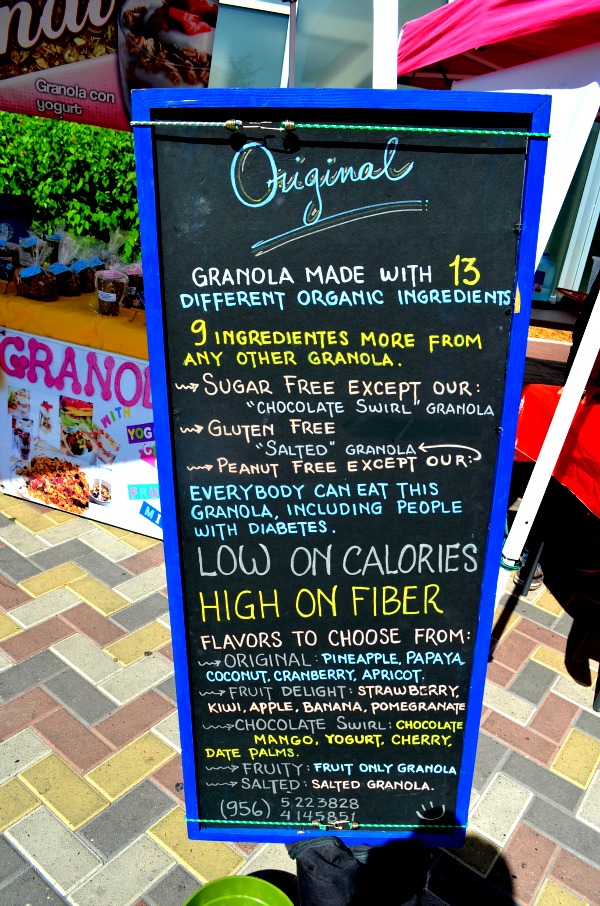 Granola con
yogurt
GRANOL
WITH
Original
GRANOLA MADE WITH 13
DIFFERENT ORGANIC INGREDIENTS
9 INGREDIENTES MORE FROM
ANY OTHER GRANOLA.
SUGAR FREE EXCEPT OUR:
"CHOCOLATE SWIRL" GRANOLA
GLUTEN FREE
"SALTED" GRANOLA
PEANUT FREE EXCEPT OUR:
EVERYBODY CAN EAT THIS
GRANOLA, INCLUDING PEOPLE
WITH DIABETES.
LOW ON CALORIES
HIGH ON FIBER
FLAVORS TO CHOOSE FROM:
ORIGINAL: PINEAPPLE, PAPAYA,
COCONUT, CRANBERRY, APRICOT.
FRUIT DELIGHT: STRAWBERRY,
KIWI, APPLE, BANANA, POMEGRANATE
CHOCOLATE SWIRL: CHOCOLATE
MANGO, YOGURT, CHERRY,
DATE PALMS.
FRUITY: FRUIT ONLY GRANOLA
SALTED: SALTED GRANOLA.
(956) 5223828
4145851